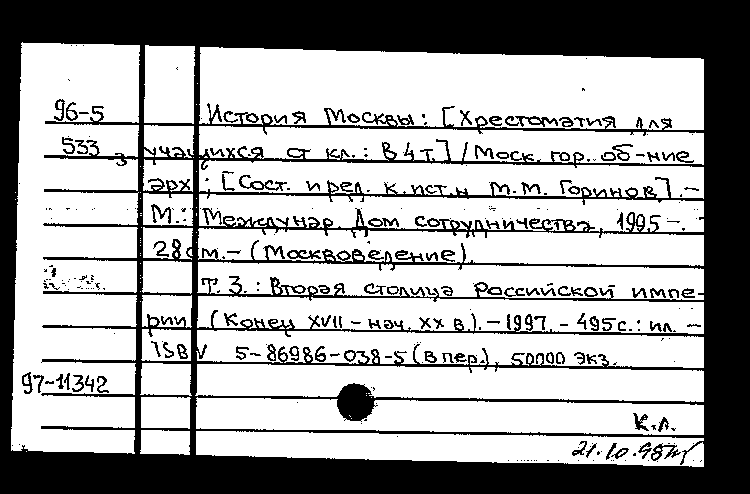 96-5 История Москвы: [Хрестоматия для
533-3 учащихся ст кл.: В 4 т.] / Моск. гор. об-ние
арх.; [Сост. и ред. к.ист.н М.М. Горинов]. -
М.: Междунар. Дом сотрудничества, 1995 -.
28 см. - (Москвоведение).
Т. 3.: Вторая столица Российской импе-
рии (Конец XVII - нач. XX в). - 1997. - 495 с.: ил. -
ISBN 5-86986-038-5 (В пер.), 50000 экз.
97-11342
К.Л.
21.10.98